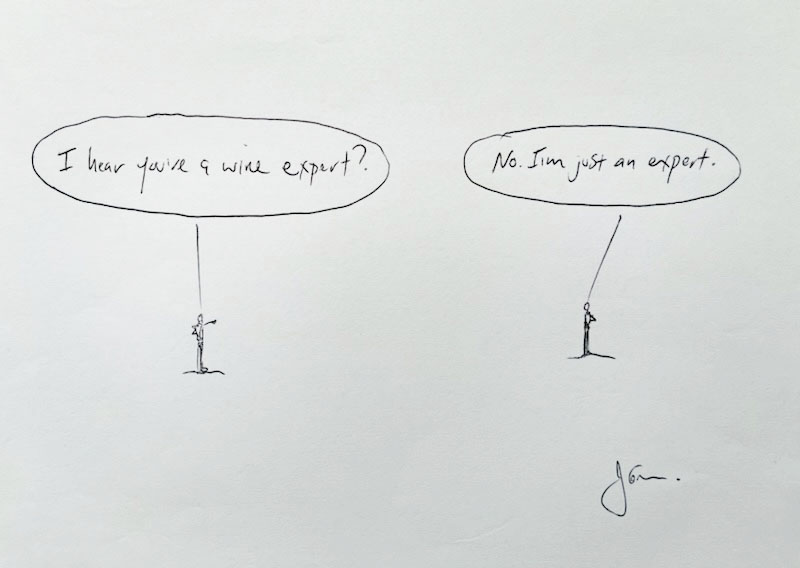 I hear you're a wine expert?
No. I'm just an expert.